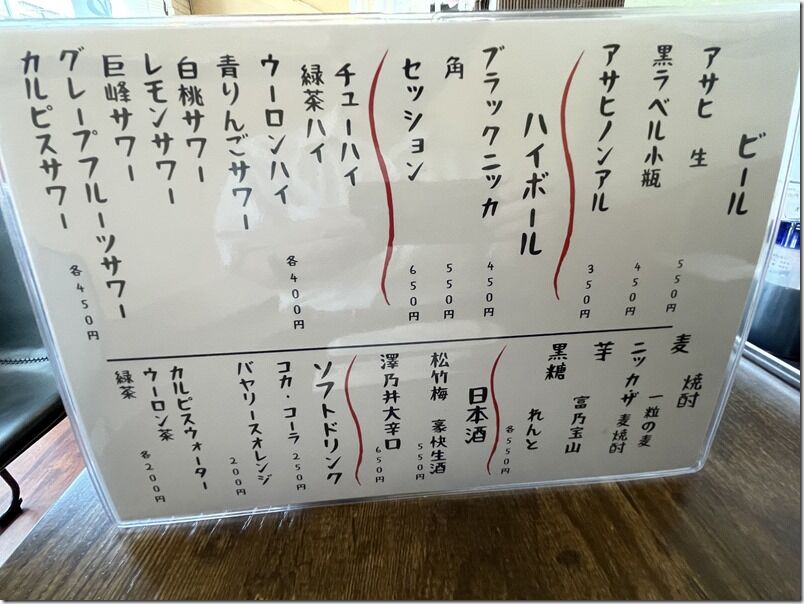 ビール
アサヒ 生 550円
黒ラベル小瓶 450円
アサヒノンアル 350円
ハイボール
ブラックニッカ 450円
角 550円
セッション 650円
チューハイ
緑茶ハイ
ウーロンハイ 各400円
青りんごサワー
白桃サワー
レモンサワー
巨峰サワー
グレープフルーツサワー
カルピスサワー 各450円
焼酎
麦 一粒の麦
ニッカザ 麦焼酎
芋 富乃宝山
黒糖 れんと
各550円
日本酒
松竹梅 豪快生酒 550円
澤乃井大辛口 650円
ソフトドリンク
コカ・コーラ 250円
バヤリースオレンジ 200円
カルピスウォーター
ウーロン茶
緑茶 各200円